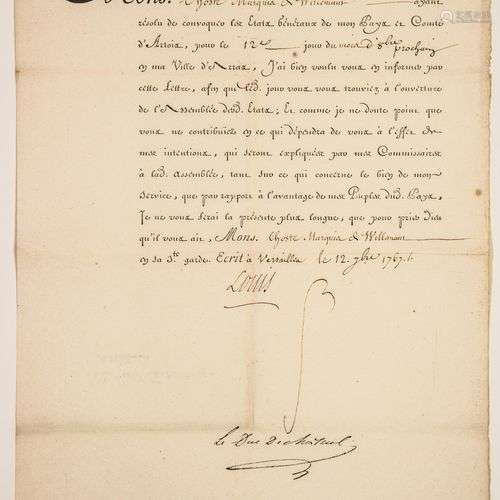 Mons. Lhoste Marquis de Willeman ayant
résolu de convoquer les Etats Généraux de mon Pays et Comté
d'Artois, pour le 12e jour du mois d'8bre prochain
en ma Ville d'Arras, J'ai bien voulu vous en informer par
cette Lettre, afin que led. jour vous vous trouviez à l'ouverture
de l'Assemblée desd. Etats; Et comme je ne doute point que
vous ne contribuiez en ce qui dépendra de vous à l'effet de
mes intentions, qui seront expliquées par mes Commissaires
à lad. Assemblée, tant sur ce qui concerne le bien de mon
Service, que par rapport à l'avantage de mes Peuples dud. Pays,
Je ne vous ferai la présente plus longue, que pour prier Dieu
qu'il vous ait, Mons. Lhoste Marquis de Willeman
en sa Ste garde. Ecrit à Versailles le 12. 7bre 1767.
Louis
Le Duc de choiseul